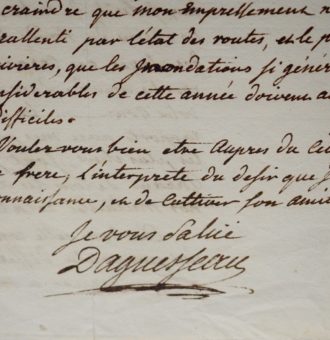 craindre que mon empressement n
rallenti par l'état des routes, et le p
rivieres, que les Jnondations si génér
nsidérables de cette année doivent a
difficiles.
Voulez vous bien etre Aupres du Ci
e frere, l'interprete du desir que J
onnaissance, et de Cultiver son ami
Je vous salue
Daguesseau